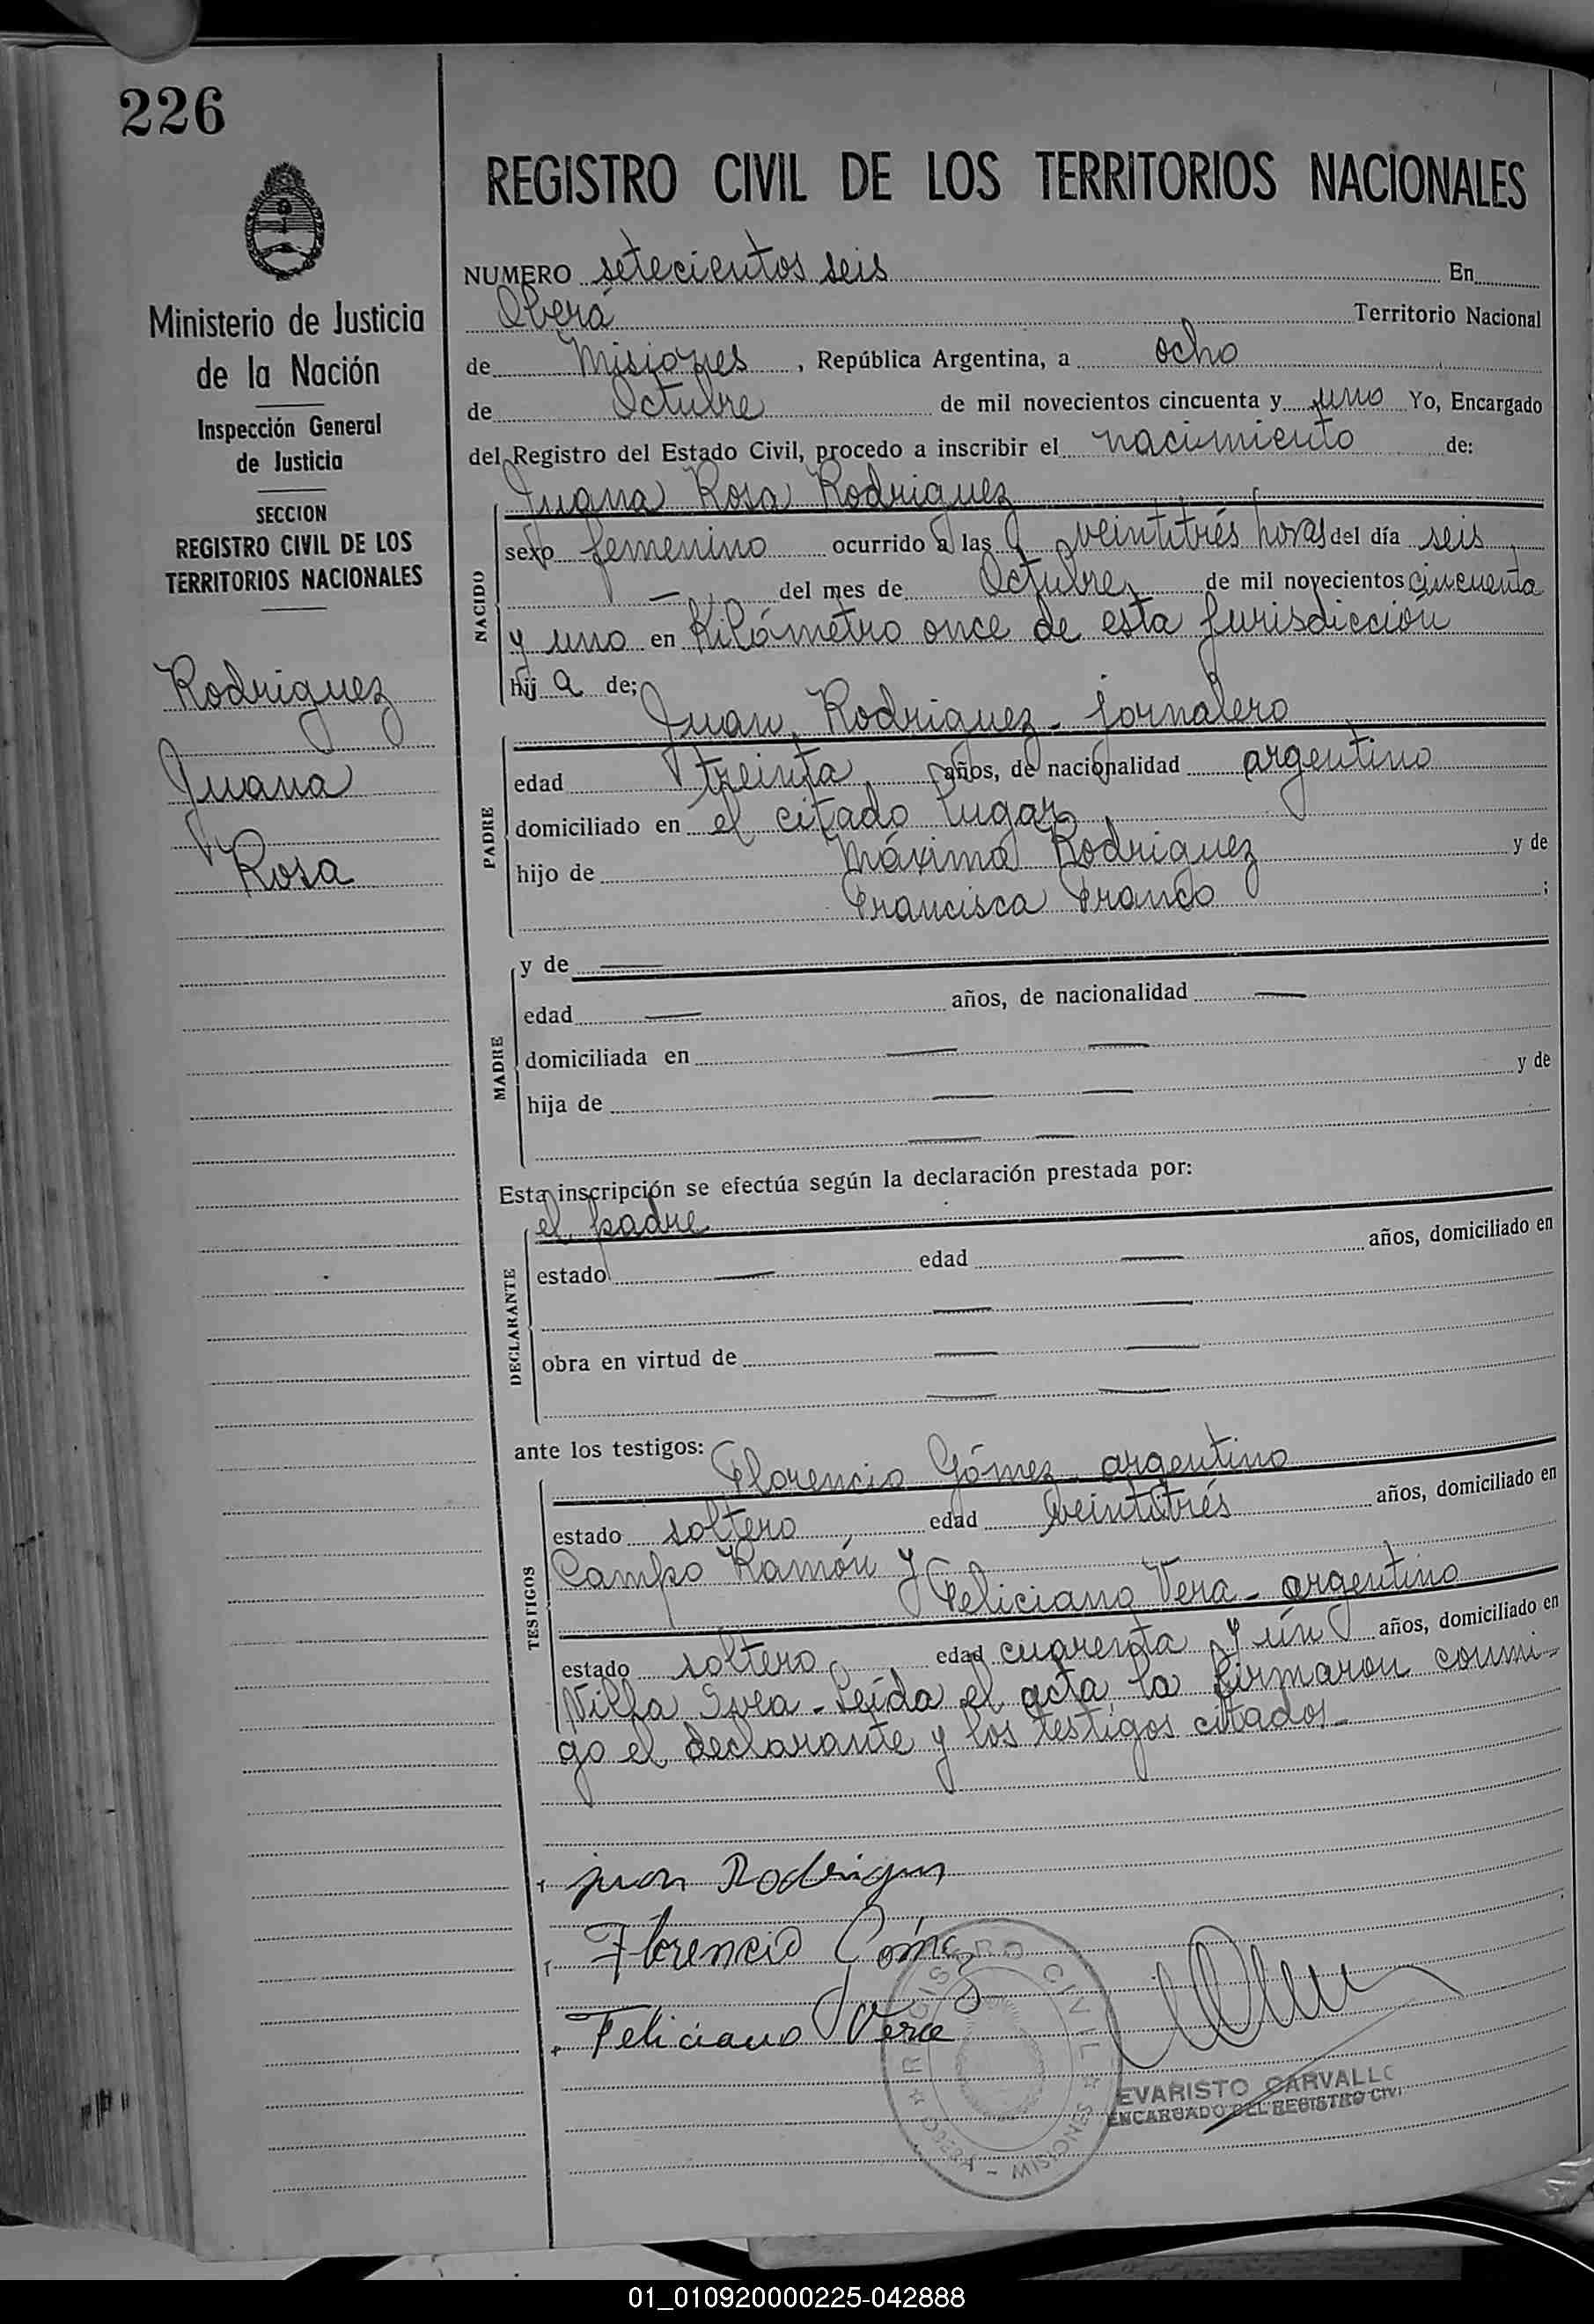 226
REGISTRO CIVIL DE LOS TERRITORIOS NACIONALES
Ministerio de Justicia
de la Nación
Inspección General
de Justicia
SECCION
REGISTRO CIVIL DE LOS
TERRITORIOS NACIONALES
Rodriguez
Juana
Rosa
NUMERO setecientos seis En
Oberá Territorio Nacional
de Misiones, República Argentina, a ocho
de Octubre de mil novecientos cincuenta y uno Yo, Encargado
del Registro del Estado Civil, procedo a inscribir el nacimiento de:
Juana Rosa Rodriguez
NACIDO
sexo femenino ocurrido a las veintitrés horas del día seis
— del mes de Octubre de mil novecientos cincuenta
y uno en Kilómetro once de esta jurisdicción
hij a de;
Juan Rodriguez - jornalero
PADRE
edad treinta años, de nacionalidad argentino
domiciliado en el citado lugar
hijo de Máximo Rodriguez y de
Francisca Franco ;
MADRE
y de —
edad — años, de nacionalidad —
domiciliada en — —
hija de — — y de
— —
Esta inscripción se efectúa según la declaración prestada por:
el padre
DECLARANTE
estado — edad — años, domiciliado en
— —
obra en virtud de — —
— —
ante los testigos: Florencio Gómez - argentino
TESTIGOS
estado soltero, edad veintitrés años, domiciliado en
Campo Ramón y
Feliciano Vera - argentino
estado soltero edad cuarenta y ún años, domiciliado en
Villa Svea - Leída el acta la firmaron conmi-
go el declarante y los testigos citados -
juan Rodrigues
Florencio Gómez
Feliciano Vera
REGISTRO CIVIL
MISIONES
EVARISTO CARVALLO
ENCARGADO DEL REGISTRO CIVI
01_010920000225-042888